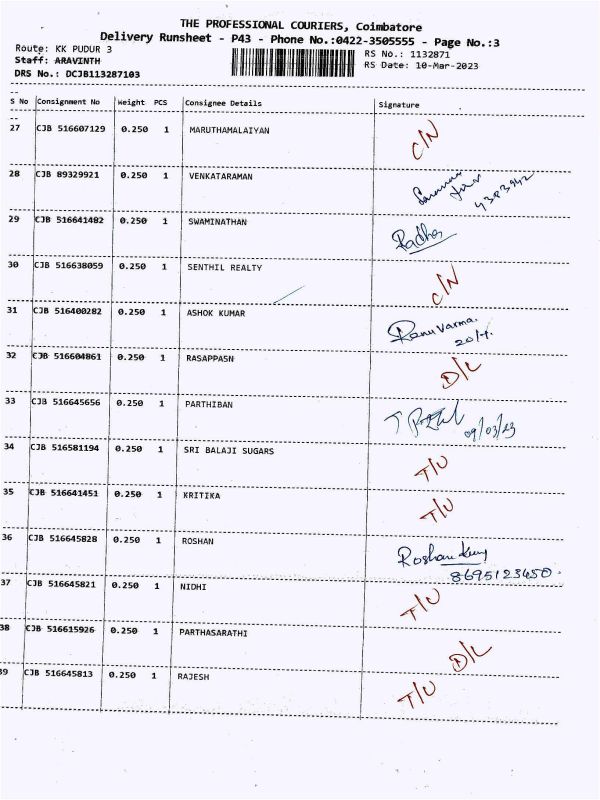 THE PROFESSIONAL COURIERS, Coimbatore
Delivery Runsheet - P43 - Phone No.:0422-3505555 - Page No.:3
Route: KK PUDUR 3 RS No.: 1132871
Staff: ARAVINTH RS Date: 10-Mar-2023
DRS No.: DCJB113287103
S No Consignment No Weight PCS Consignee Details Signature
27 CJB 516607129 0.250 1 MARUTHAMALAIYAN C/N
28 CJB 89329921 0.250 1 VENKATARAMAN
4383942
29 CJB 516641482 0.250 1 SWAMINATHAN Radha
30 CJB 516638059 0.250 1 SENTHIL REALTY C/N
31 CJB 516400282 0.250 1 ASHOK KUMAR Ranu Varma.
32 CJB 516604861 0.250 1 RASAPPASN D/L
33 CJB 516645656 0.250 1 PARTHIBAN
09/03/23
34 CJB 516581194 0.250 1 SRI BALAJI SUGARS T/U
35 CJB 516641451 0.250 1 KRITIKA T/U
36 CJB 516645828 0.250 1 ROSHAN Roshan
8695123450.
37 CJB 516645821 0.250 1 NIDHI T/U
38 CJB 516615926 0.250 1 PARTHASARATHI D/L
39 CJB 516645813 0.250 1 RAJESH T/U